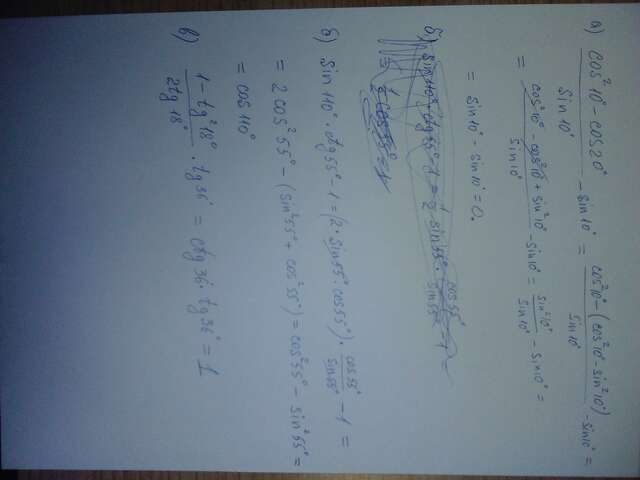 а) cos²10° - cos20° / sin10° - sin10° = cos²10° - (cos²10° - sin²10°) / sin10° - sin10° =
= cos²10° - cos²10° + sin²10° / sin10° - sin10° = sin²10° / sin10° - sin10° =
= sin10° - sin10° = 0.
б) sin110° · ctg55° - 1 = (2 · sin55° · cos55°) · cos55° / sin55° - 1 =
= 2cos²55° - (sin²55° + cos²55°) = cos²55° - sin²55° =
= cos110°
в) 1 - tg²18° / 2tg18° · tg36° = ctg36° · tg36° = 1